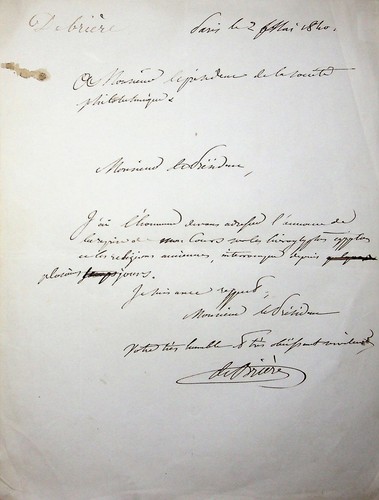 De brière
Paris le 2 Mai 1840.
A Monsieur le président de la société
philotechnique.
Monsieur le Président,
J'ai l'honneur de vous adresser l'annonce de
la reprise de mon Cours sur les hieroglyphes égyptiens
et les religions anciennes, interrompu depuis
plusieurs jours.
Je suis avec respect,
Monsieur le Président
Votre très humble & très obéissant serviteur
de Brière